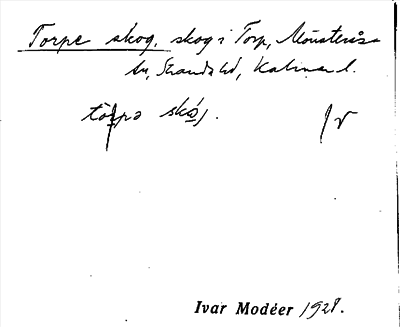 Torpe skog, skog i Torp, Mönsterås
sn, Stranda hd, Kalmar l.
tårpə skóg.
IV
Ivar Modéer 1928.